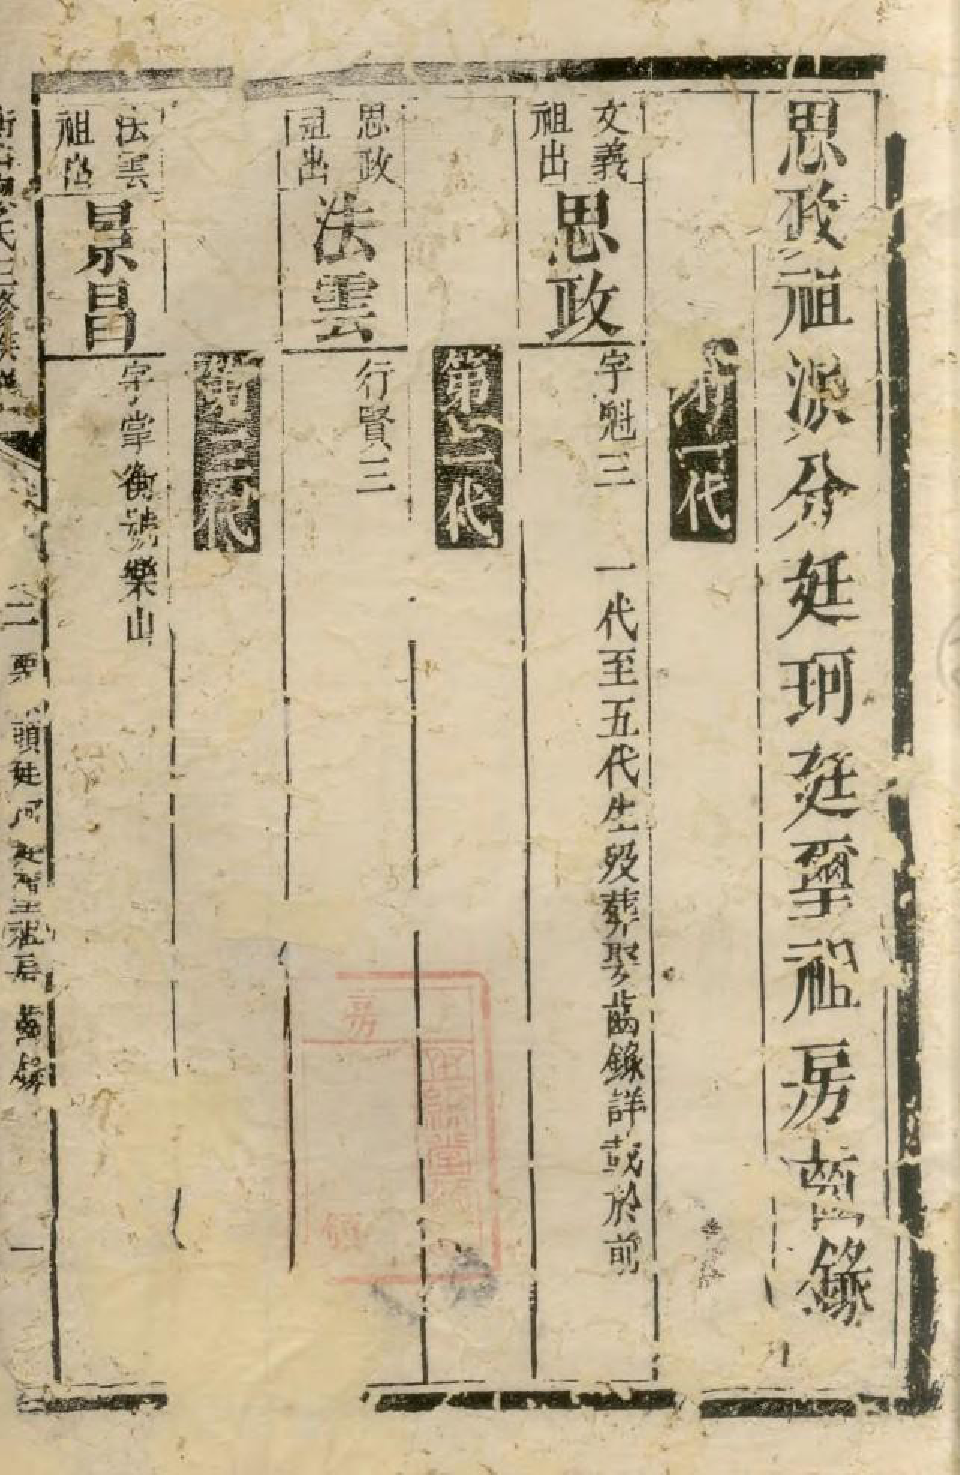 思政祖派分廷珂廷璽祖房齒錄
第一代
文義
祖出
思政
字魁三　一代至五代生歿葬娶齒錄詳載於前
第二代
思政
祖出
法雲
行賢三
第三代
法雲
祖出
景昌
字掌衡號樂山
二
栗
頭廷珂廷璽祖房
齒錄
一